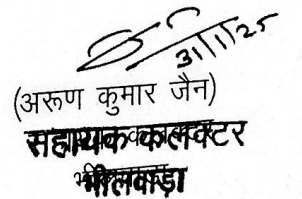 31/1/25
(अरूण कुमार जैन)
सहायक कलक्टर
भीलवाड़ा